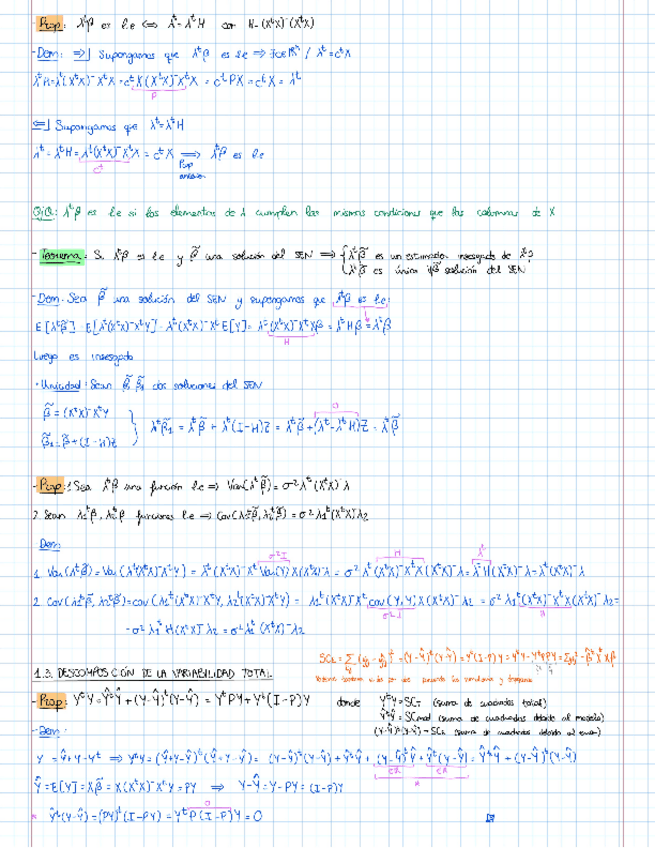 - Prop: λᵗβ es l.e ⟺ λᵗ = λᵗH con H = (XᵗX)⁻(XᵗX)
- Dem: ⇒] Supongamos que λᵗβ es l.e ⇒ ∃c∈ℝⁿ / λᵗ = cᵗX
λᵗH = λᵗ(XᵗX)⁻XᵗX = cᵗX(XᵗX)⁻XᵗX = cᵗPX = cᵗX = λᵗ
P
⇐] Supongamos que λᵗ = λᵗH
λᵗ = λᵗH = λᵗ(XᵗX)⁻XᵗX = cᵗX ⟹ λᵗβ es l.e
cᵗ
Prop anterior
OJO: λᵗβ es l.e si los elementos de λ cumplen las mismas condiciones que las columnas de X
- Teorema: Si λᵗβ es l.e y β̃ una solución del SEN ⟹ { λᵗβ̃ es un estimador insesgado de λᵗβ
λᵗβ̃ es única ∀β̃ solución del SEN
- Dem: Sea β̃ una solución del SEN y supongamos que λᵗβ es l.e:
E[λᵗβ̃] = E[λᵗ(XᵗX)⁻XᵗY] = λᵗ(XᵗX)⁻XᵗE[Y] = λᵗ(XᵗX)⁻XᵗXβ = λᵗHβ = λᵗβ
H
Luego es insesgado
· Unicidad: Sean β̃, β̃₁ dos soluciones del SEN
β̃ = (XᵗX)⁻XᵗY
β̃₁ = β̃ + (I - H)Z
} λᵗβ̃₁ = λᵗβ̃ + λᵗ(I-H)Z = λᵗβ̃ + (λᵗ-λᵗH)Z = λᵗβ̃
0
- Prop: 1. Sea λᵗβ una función l.e ⇒ Var(λᵗβ̃) = σ²λᵗ(XᵗX)⁻λ
2. Sean λ₁ᵗβ, λ₂ᵗβ funciones l.e ⇒ Cov(λ₁ᵗβ̃, λ₂ᵗβ̃) = σ²λ₁ᵗ(XᵗX)⁻λ₂
Dem:
σ²I H λᵗ
1. Var(λᵗβ̃) = Var(λᵗ(XᵗX)⁻XᵗY) = λᵗ(XᵗX)⁻Xᵗ Var(Y) X(XᵗX)⁻λ = σ²λᵗ(XᵗX)⁻XᵗX(XᵗX)⁻λ = λᵗH(XᵗX)⁻λ = λᵗ(XᵗX)⁻λ
2. Cov(λ₁ᵗβ̃, λ₂ᵗβ̃) = cov(λ₁ᵗ(XᵗX)⁻XᵗY, λ₂ᵗ(XᵗX)⁻XᵗY) = λ₁ᵗ(XᵗX)⁻Xᵗ cov(Y,Y) X(XᵗX)⁻λ₂ = σ²λ₁ᵗ(XᵗX)⁻XᵗX(XᵗX)⁻λ₂ =
σ²I H
= σ²λ₁ᵗH(XᵗX)⁻λ₂ = σ²λ₁ᵗ(XᵗX)⁻λ₂
1.3. DESCOMPOSICIÓN DE LA VARIABILIDAD TOTAL
- Prop: YᵗY = ŶᵗŶ + (Y-Ŷ)ᵗ(Y-Ŷ) = YᵗPY + Yᵗ(I-P)Y donde YᵗY = SC_T (suma de cuadrados total)
ŶᵗŶ = SCmod (suma de cuadrados debida al modelo)
(Y-Ŷ)ᵗ(Y-Ŷ) = SCε (suma de cuadrados debida al error)
- Dem:
Y = Ŷ + Y - Ŷ ⟹ YᵗY = (Ŷ+Y-Ŷ)ᵗ(Ŷ+Y-Ŷ) = (Y-Ŷ)ᵗ(Y-Ŷ) + ŶᵗŶ + (Y-Ŷ)ᵗŶ + Ŷᵗ(Y-Ŷ) = ŶᵗŶ + (Y-Ŷ)ᵗ(Y-Ŷ)
*
Ŷ = E[Y] = Xβ̃ = X(XᵗX)⁻XᵗY = PY ⟹ Y-Ŷ = Y-PY = (I-P)Y
0
* Ŷᵗ(Y-Ŷ) = (PY)ᵗ(I-PY) = YᵗP(I-P)Y = 0